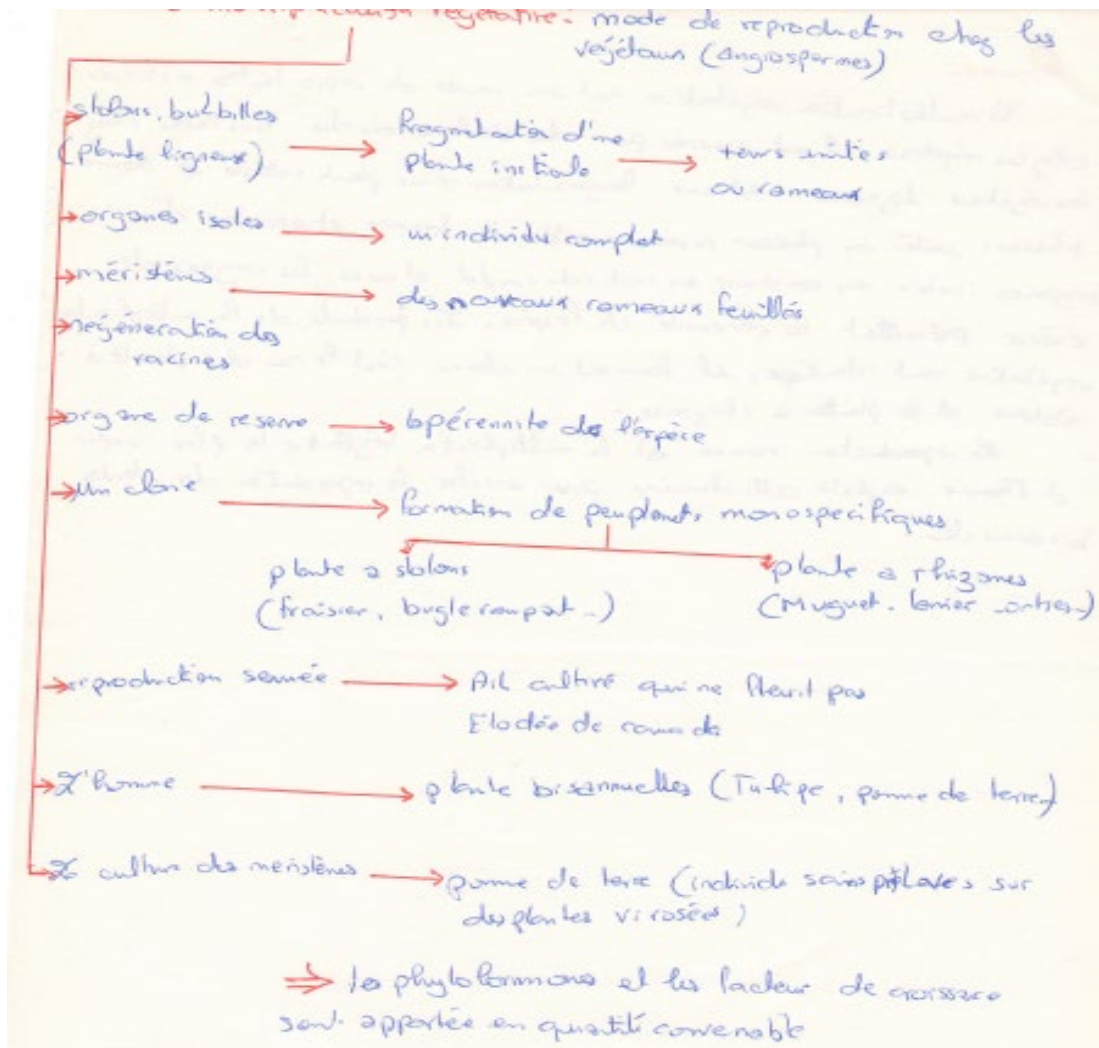 multiplication végétative: mode de reproduction chez les
véjétaux (Angiospermes)
stolons, bulbilles
(plante ligneux) → fragmentation d'une
plante initiale → +eurs unités
ou rameaux
organes isoles → un individu complet
méristèmes → des nouveaux rameaux feuillés
regeneration des
racines
organe de reserve → la pérennité de l'espèce
un clone → formation de peuplements monospecifiques
plante a stolons
(fraisier, bugle rampat..)
plante a rhizomes
(Muguet. lamier _orties..)
reproduction sexuée → Ail cultivé qui ne fleurit pas
Elodée de canada
L'homme → plante bisannuelles (Tulipe, pomme de terre)
La culture des meristèmes → pomme de terre (individu sains préleves sur
des plantes virosées)
⇒ les phytohormones et les facteur de croissance
sont apportée en quantité convenable